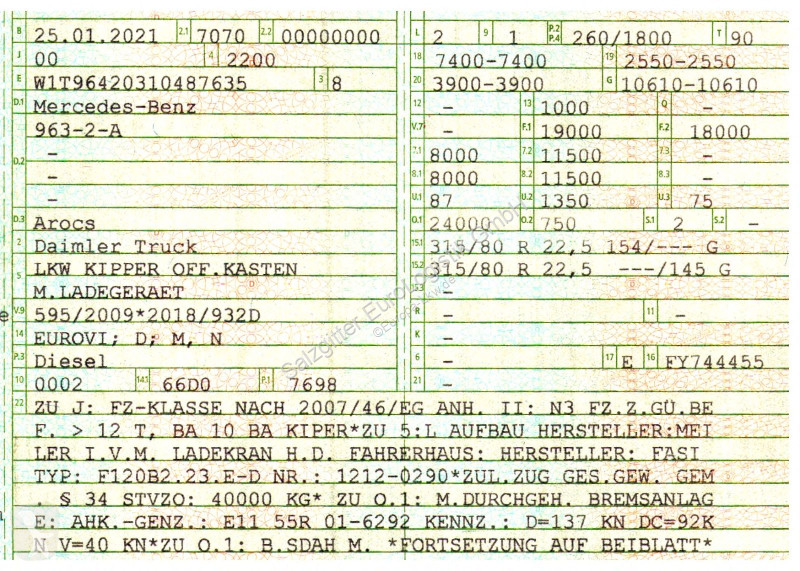 B 25.01.2021 2.1 7070 2.2 00000000
J 00 4 2200
E W1T96420310487635 3 8
D.1 Mercedes-Benz
963-2-A
D.2 –
–
–
D.3 Arocs
2 Daimler Truck
LKW KIPPER OFF.KASTEN
5 M.LADEGERAET
V.9 595/2009*2018/932D
14 EUROVI; D; M, N
P.3 Diesel
10 0002 14.1 66D0 P.1 7698
L 2 9 1 P.2 P.4 260/1800 T 90
18 7400-7400 19 2550-2550
20 3900-3900 G 10610-10610
12 – 13 1000 Q –
V.7 – F.1 19000 F.2 18000
7.1 8000 7.2 11500 7.3 –
8.1 8000 8.2 11500 8.3 –
U.1 87 U.2 1350 U.3 75
O.1 24000 O.2 750 S.1 2 S.2 –
15.1 315/80 R 22,5 154/--- G
15.2 315/80 R 22,5 ---/145 G
–
R – 11 –
K –
6 – 17 E 16 FY744455
21 –
22 ZU J: FZ-KLASSE NACH 2007/46/EG ANH. II: N3 FZ.Z.GÜ.BE
F. > 12 T, BA 10 BA KIPER*ZU 5:L AUFBAU HERSTELLER:MEI
LER I.V.M. LADEKRAN H.D. FAHRERHAUS: HERSTELLER: FASI
TYP: F120B2.23.E-D NR.: 1212-0290*ZUL.ZUG GES.GEW. GEM
. § 34 STVZO: 40000 KG* ZU O.1: M.DURCHGEH. BREMSANLAG
E: AHK.-GENZ.: E11 55R 01-6292 KENNZ.: D=137 KN DC=92K
N V=40 KN*ZU O.1: B.SDAH M. *FORTSETZUNG AUF BEIBLATT*